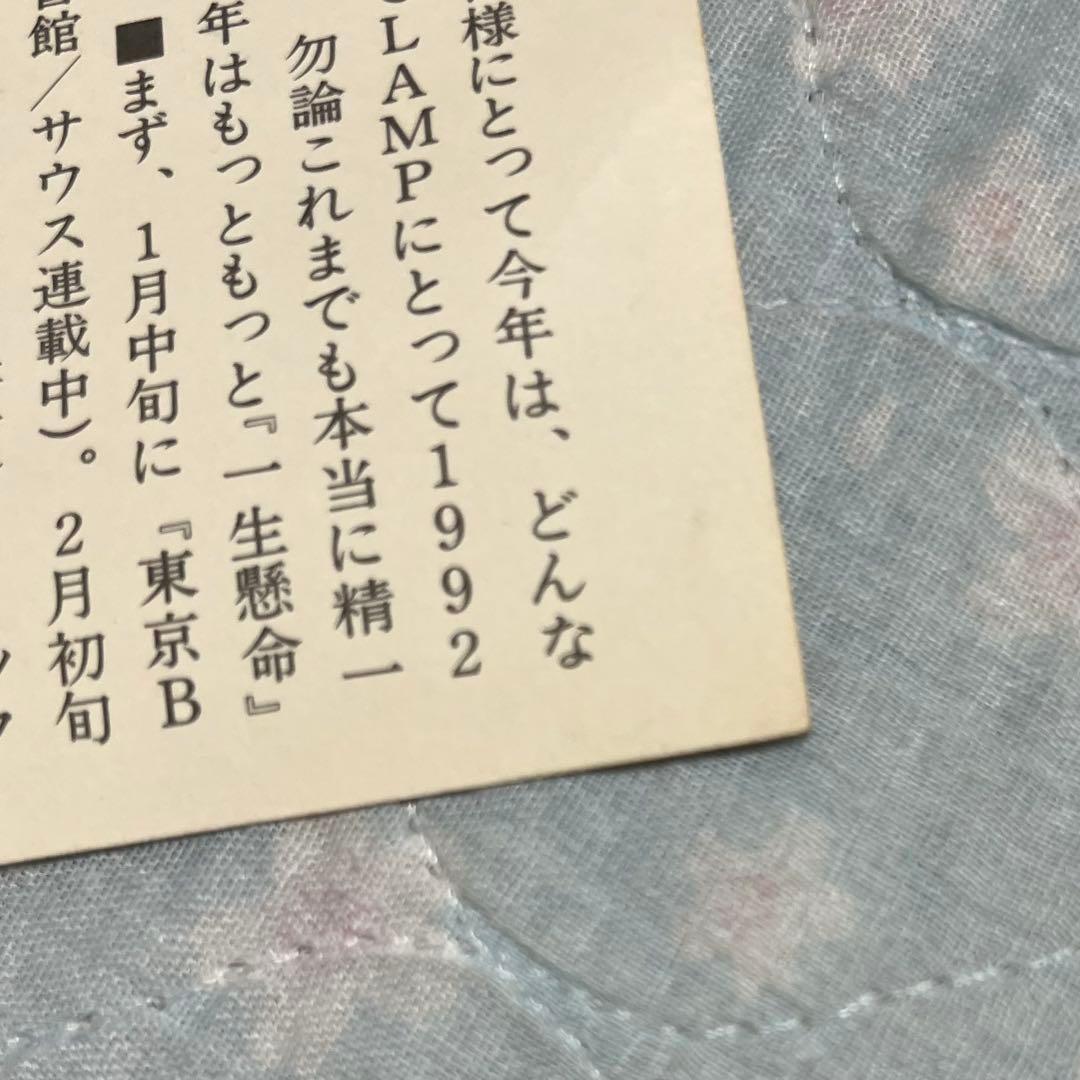 様にとって今年は、どんな
LAMPにとって1992
勿論これまでも本当に精一
年はもっともっと『一生懸命』
■まず、1月中旬に『東京B
館/サウス連載中)。2月初旬